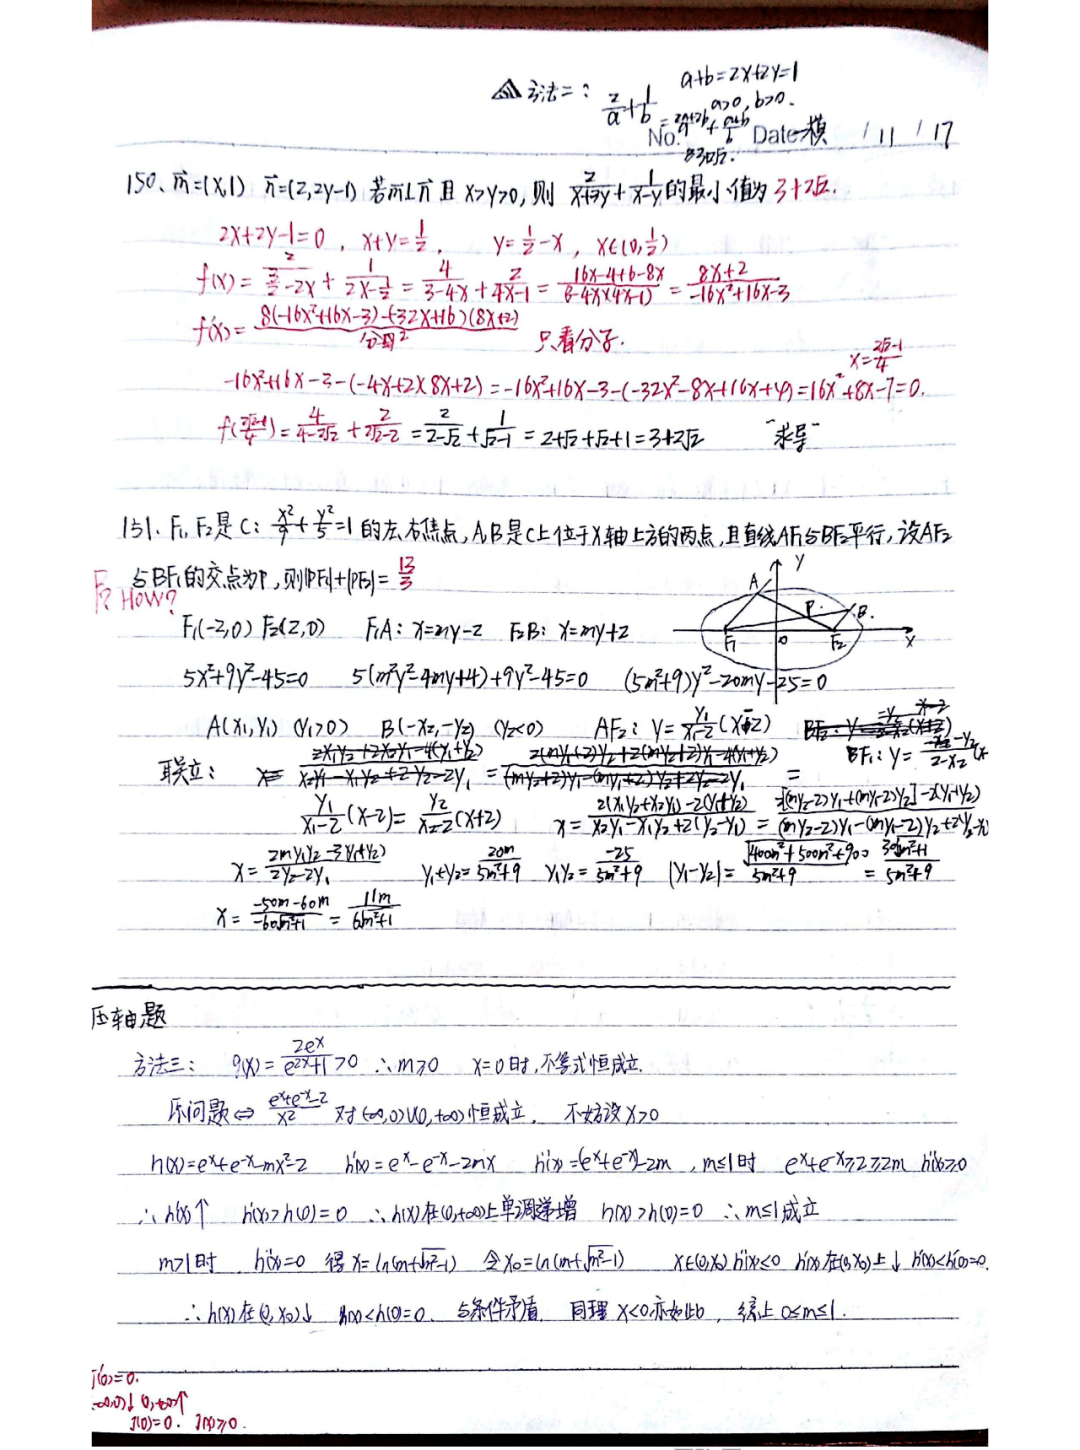 方法二: 2/a+1/b a+b=2x+2y=1
a>0, b>0.
=(2a+2b)/a+(a+b)/b
≥3+2√2.
No. Date 一模 / 11 / 17
150、m⃗=(x,1) n⃗=(2,2y-1) 若m⃗⊥n⃗ 且 x>y>0, 则 2/(x+3y)+1/(x-y)的最小值为 3+2√2.
2x+2y-1=0 , x+y=1/2 , y=1/2-x , x∈(0,1/2)
f(x)=2/(3/2-2x)+1/(2x-1/2)=4/(3-4x)+2/(4x-1)=(16x-4+6-8x)/(3-4x)(4x-1)=(8x+2)/(-16x²+16x-3)
f'(x)=(8(-16x²+16x-3)-(-32x+16)(8x+2))/分母² 只看分子.
x=(2√2-1)/4
-16x²+16x-3-(-4x+2)(8x+2)=-16x²+16x-3-(-32x²-8x+16x+4)=16x²+8x-7=0.
f((2√2-1)/4)=4/(4-2√2)+2/(2√2-2)=2/(2-√2)+1/(√2-1)=2+√2+√2+1=3+2√2 "求导"
151. F₁, F₂是 C: x²/9+y²/5=1 的左、右焦点, A,B是C上位于x轴上方的两点, 且直线AF₁与BF₂平行, 设AF₂
与BF₁的交点为P, 则|PF₁|+|PF₂|=13/3
How?
F₁(-2,0) F₂(2,0) F₁A: x=my-2 F₂B: x=my+2
A P B
F₁ 0 F₂ x y
5x²+9y²-45=0 5(m²y²-4my+4)+9y²-45=0 (5m²+9)y²-20my-25=0
A(x₁,y₁) (y₁>0) B(-x₂,-y₂) (y₂<0) AF₂: y=y₁/(x₁-2)(x-2) BF₁: y=-y₂/(2-x₂)(x
联立:
y₁/(x₁-2)(x-2)=y₂/(x₂-2)(x+2) x=(2(x₁y₂+x₂y₁)-2(y₁+y₂))/(x₂y₁-x₁y₂+2(y₂-y₁))=
x=(2my₁y₂-3(y₁+y₂))/(2y₂-2y₁) y₁+y₂=20m/(5m²+9) y₁y₂=-25/(5m²+9) |y₁-y₂|=√(400m²+500m²+900)/(5m²+9)=30√(m²+1)/(5m²+9)
x=(-50m-60m)/(-60√(m²+1))=11m/(6√(m²+1))
压轴题
方法三: g(x)=2eˣ/(e²ˣ+1)>0 ∴m≥0 x=0时, 不等式恒成立.
原问题⇔ (eˣ+e⁻ˣ-2)/x² 对(-∞,0)∪(0,+∞)恒成立. 不妨设x>0
h(x)=eˣ+e⁻ˣ-mx²-2 h'(x)=eˣ-e⁻ˣ-2mx h''(x)=(eˣ+e⁻ˣ)-2m , m≤1时 eˣ+e⁻ˣ≥2≥2m h''(x)≥0
∴h'(x)↑ h'(x)>h'(0)=0 ∴h(x)在(0,+∞)上单调递增 h(x)>h(0)=0 ∴m≤1成立
m>1时 h''(x)=0 得x=ln(m+√(m²-1)) 令x₀=ln(m+√(m²-1)) x∈(0,x₀) h''(x)<0 h'(x)在(0,x₀)上↓ h'(x)<h'(0)=0.
∴h(x)在(0,x₀)↓ h(x)<h(0)=0. 与条件矛盾 同理 x<0亦如此, 综上 0≤m≤1.
j'(0)=0.
-∞,0)↓ 0,+∞)↑
j(0)=0. j(x)≥0.